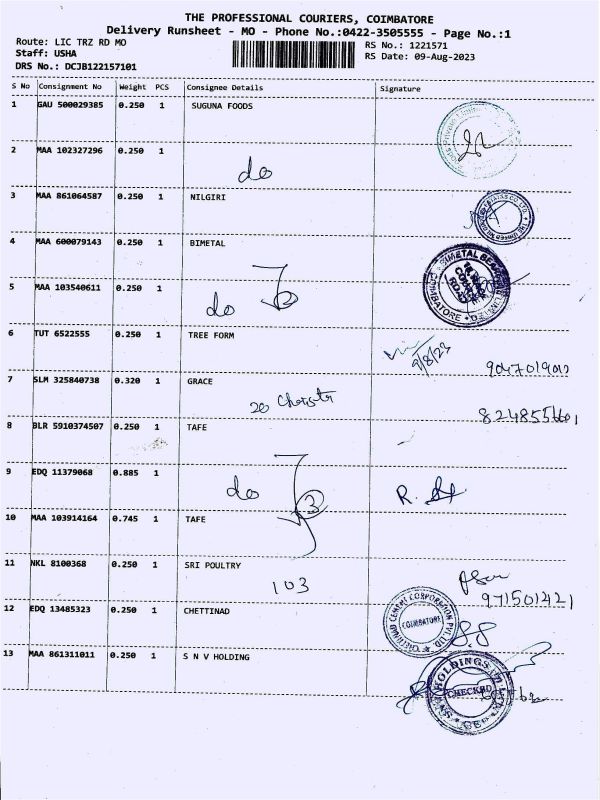 THE PROFESSIONAL COURIERS, COIMBATORE
Delivery Runsheet - MO - Phone No.:0422-3505555 - Page No.:1
Route: LIC TRZ RD MO RS No.: 1221571
Staff: USHA RS Date: 09-Aug-2023
DRS No.: DCJB122157101
S No Consignment No Weight PCS Consignee Details Signature
1 GAU 500029385 0.250 1 SUGUNA FOODS
2 MAA 102327296 0.250 1
do
3 MAA 861064587 0.250 1 NILGIRI
4 MAA 600079143 0.250 1 BIMETAL
BIMETAL
COIMBATORE
5 MAA 103540611 0.250 1
do 2
6 TUT 6522555 0.250 1 TREE FORM
9/8/23
9047019012
7 SLM 325840738 0.320 1 GRACE
20
8248551601
8 BLR 5910374507 0.250 1 TAFE
9 EDQ 11379068 0.885 1
do 3 R.
10 MAA 103914164 0.745 1 TAFE
11 NKL 8100368 0.250 1 SRI POULTRY
103
971501421
12 EDQ 13485323 0.250 1 CHETTINAD
CHETTINAD CEMENT CORPORATION PVT LTD
COIMBATORE
13 MAA 861311011 0.250 1 S N V HOLDING
HOLDINGS
CHECKED